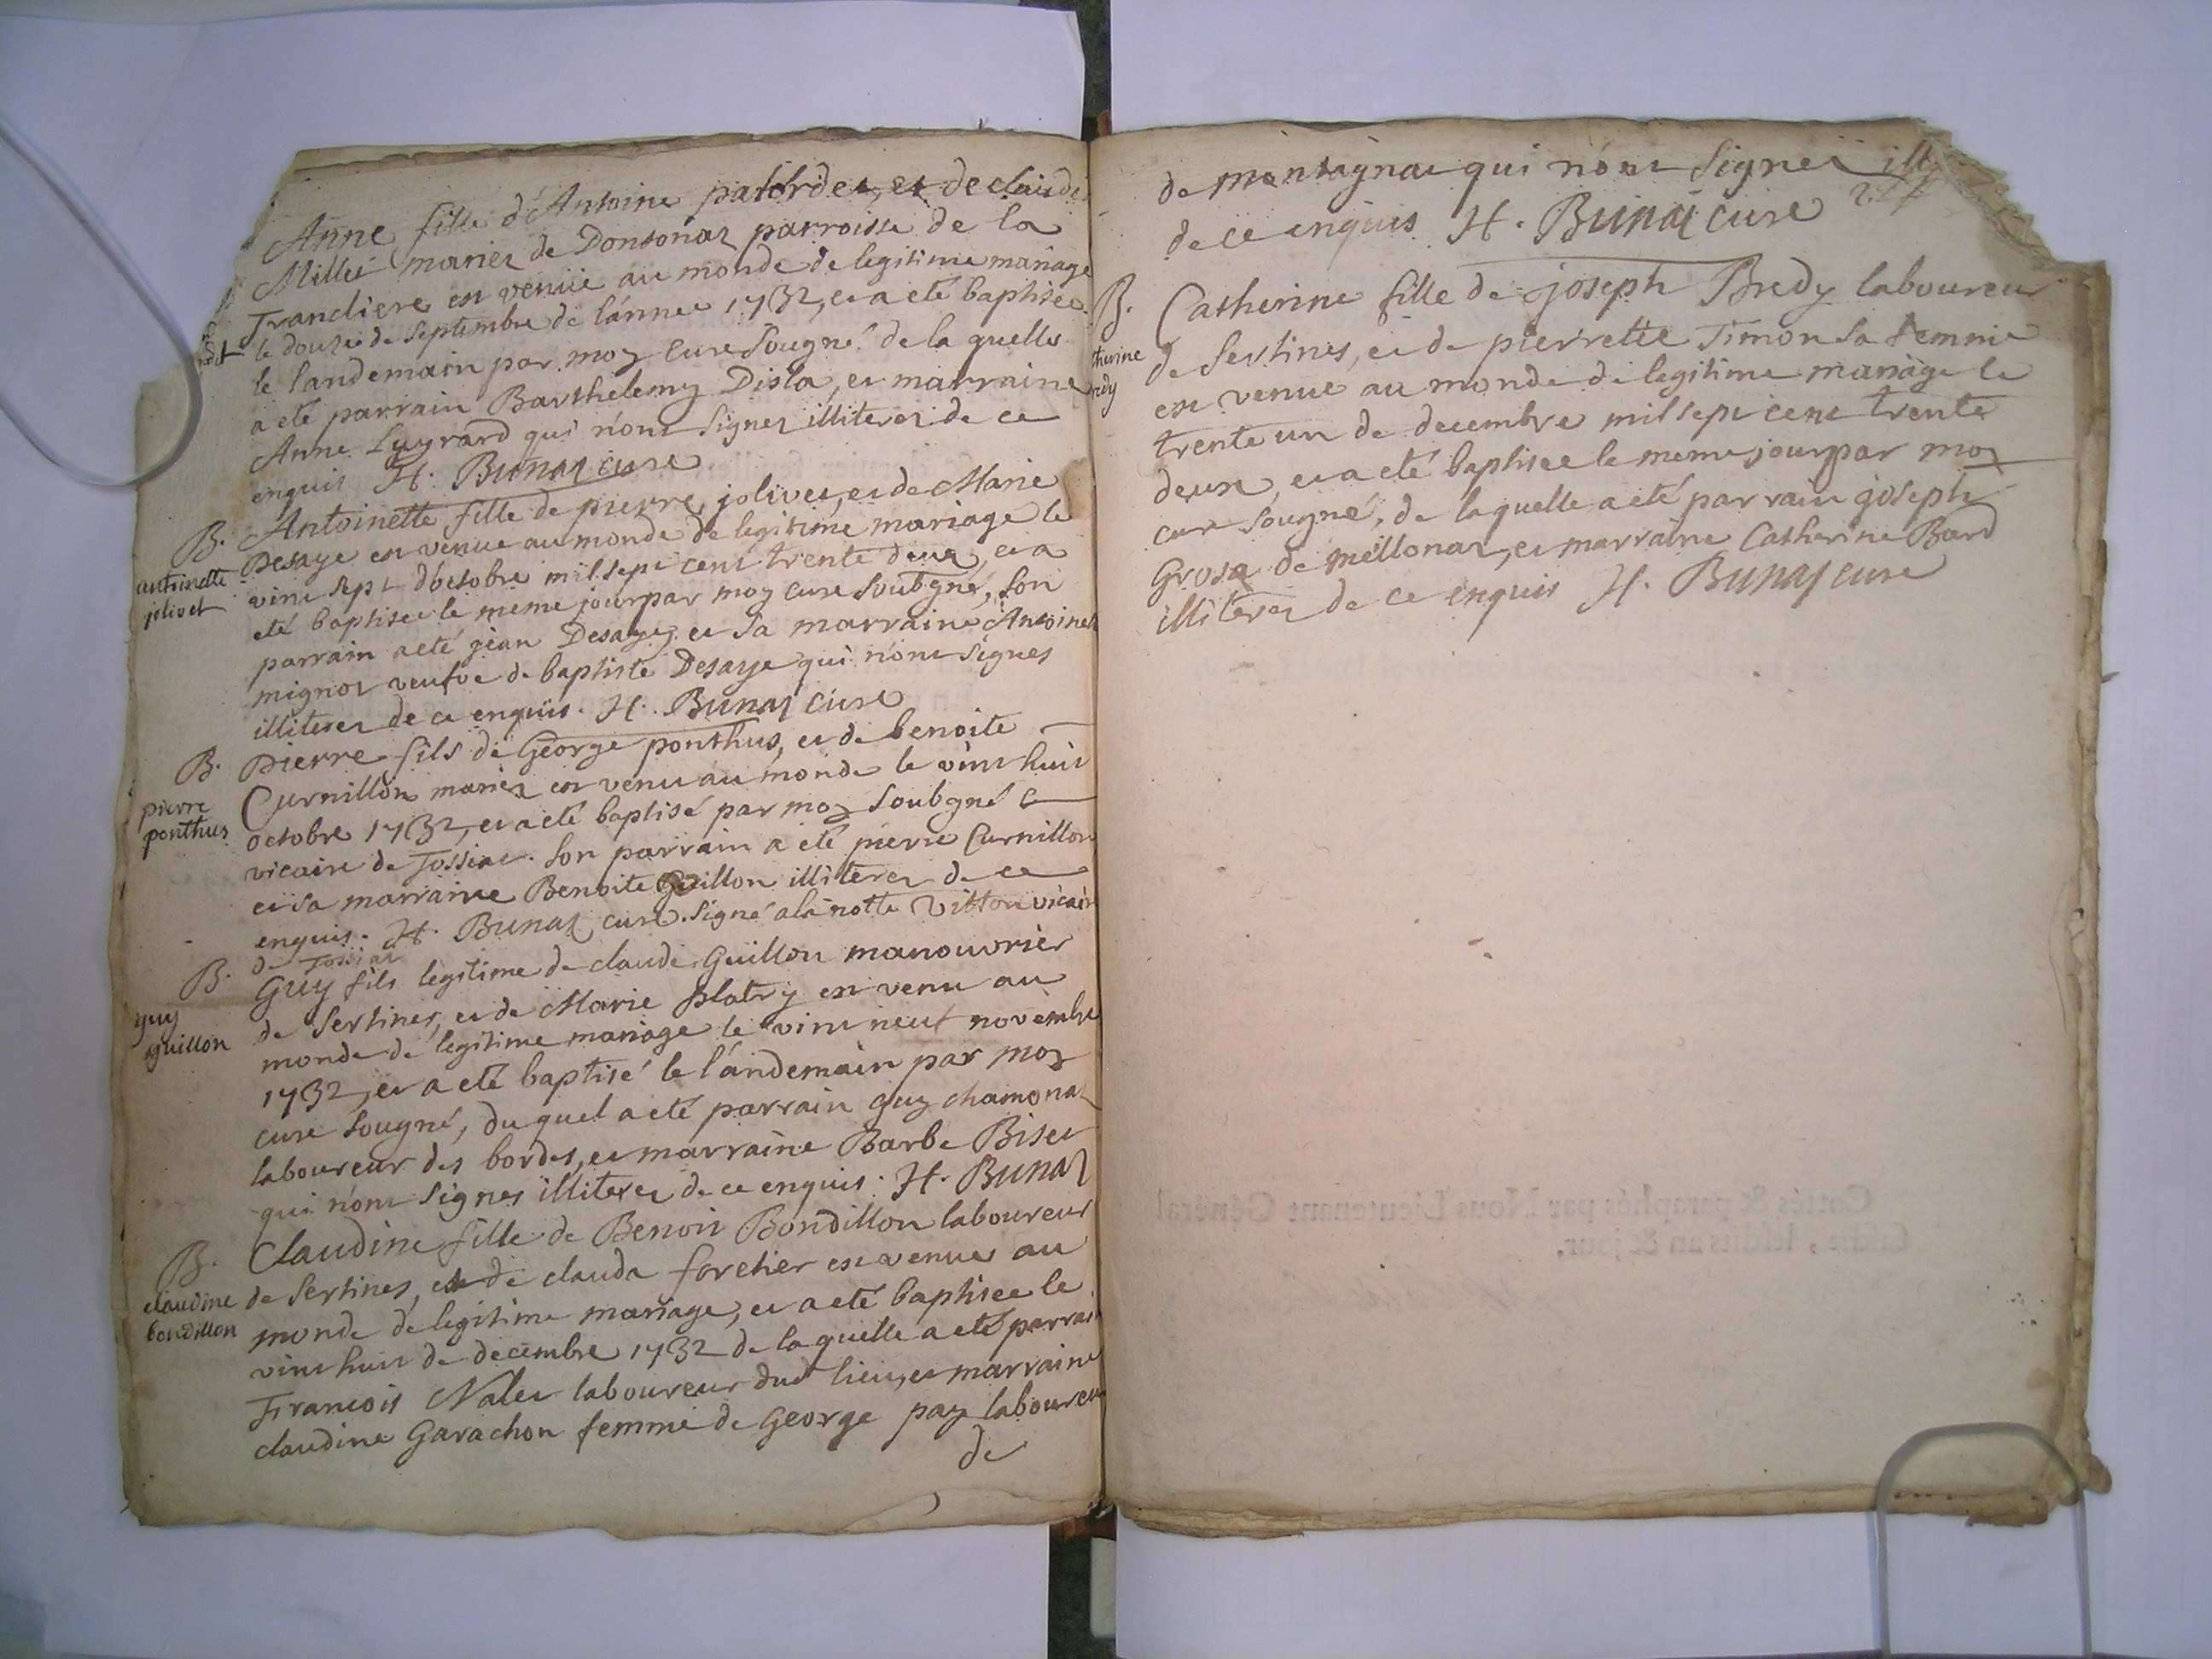 Anne fille d'Antoine palordet, et de claude
Millet mariez de Donsonaz parroisse de la
Trancliere est venüe au monde de legitime mariage
le douze de septembre de l'annee 1732, et a eté baptisée
le landemain par moy cure sougné de la quelle
a eté parrain Barthelemy Disla, et marraine
Anne Luyrard qui n'ont signez illiterez de ce
enquis H. Bunaz cure
B.
antoinette
jolivet
Antoinette fille de pierre jolivet, et de Marie
Desaye est venue au monde de legitime mariage le
vint sept d'octobre mil sept cent trente deux, et a
eté baptisee le meme jour par moy cure soubgné, son
parrain a eté jean Desaye et sa marraine Antoinet
mignot veufve de baptiste Desaye qui n'ont signes
illiterez de ce enquis. H. Bunaz cure
B.
pierre
ponthus
Pierre fils de George ponthus, et de benoite
Curnillon mariez est venu au monde le vint huit
octobre 1732, et a eté baptisé par moy soubgné
vicaire de Tossiat. Son parrain a eté pierre Curnillon
et sa marraine Benoite Guillon illiterez de ce
enquis. H. Bunaz cure. signé a la notte Vitton vicair
de Tossiat
B.
guy
guillon
Guy fils legitime de claude Guillon manouvrier
de Sertines, et de Marie platry est venu au
monde de legitime mariage le vint neuf novembre
1732, et a eté baptisé le l'andemain par moy
cure sougné, du quel a eté parrain guy chamonaz
laboureur des bordes, et marraine Barbe Biset
qui n'ont signes illiterez de ce enquis. H. Bunaz
B.
claudine
bondillon
Claudine fille de Benoit Bondillon laboureur
de Sertines, et de clauda foretier est venue au
monde de legitime mariage, et a eté baptisee le
vint huit de decembre 1732 de laquelle a eté parrai
Francois Nalet laboureur dud lieu, et marraine
claudine Garachon femme de George pay laboureur
de
de montagnat qui n'ont signez ill
de ce enquis H. Bunaz cure
B.
therine
redy
Catherine fille de joseph Bredy laboureur
de Sertines, et de pierrette Timon sa femme
est venue au monde de legitime mariage le
trente un de decembre mil sept cent trente
deux, et a eté baptisee le meme jour par moy
cure sougné, de laquelle a eté parrain joseph
Grosa de mellonaz, et marraine Catherine Bard
illiterez de ce enquis H. Bunaz cure